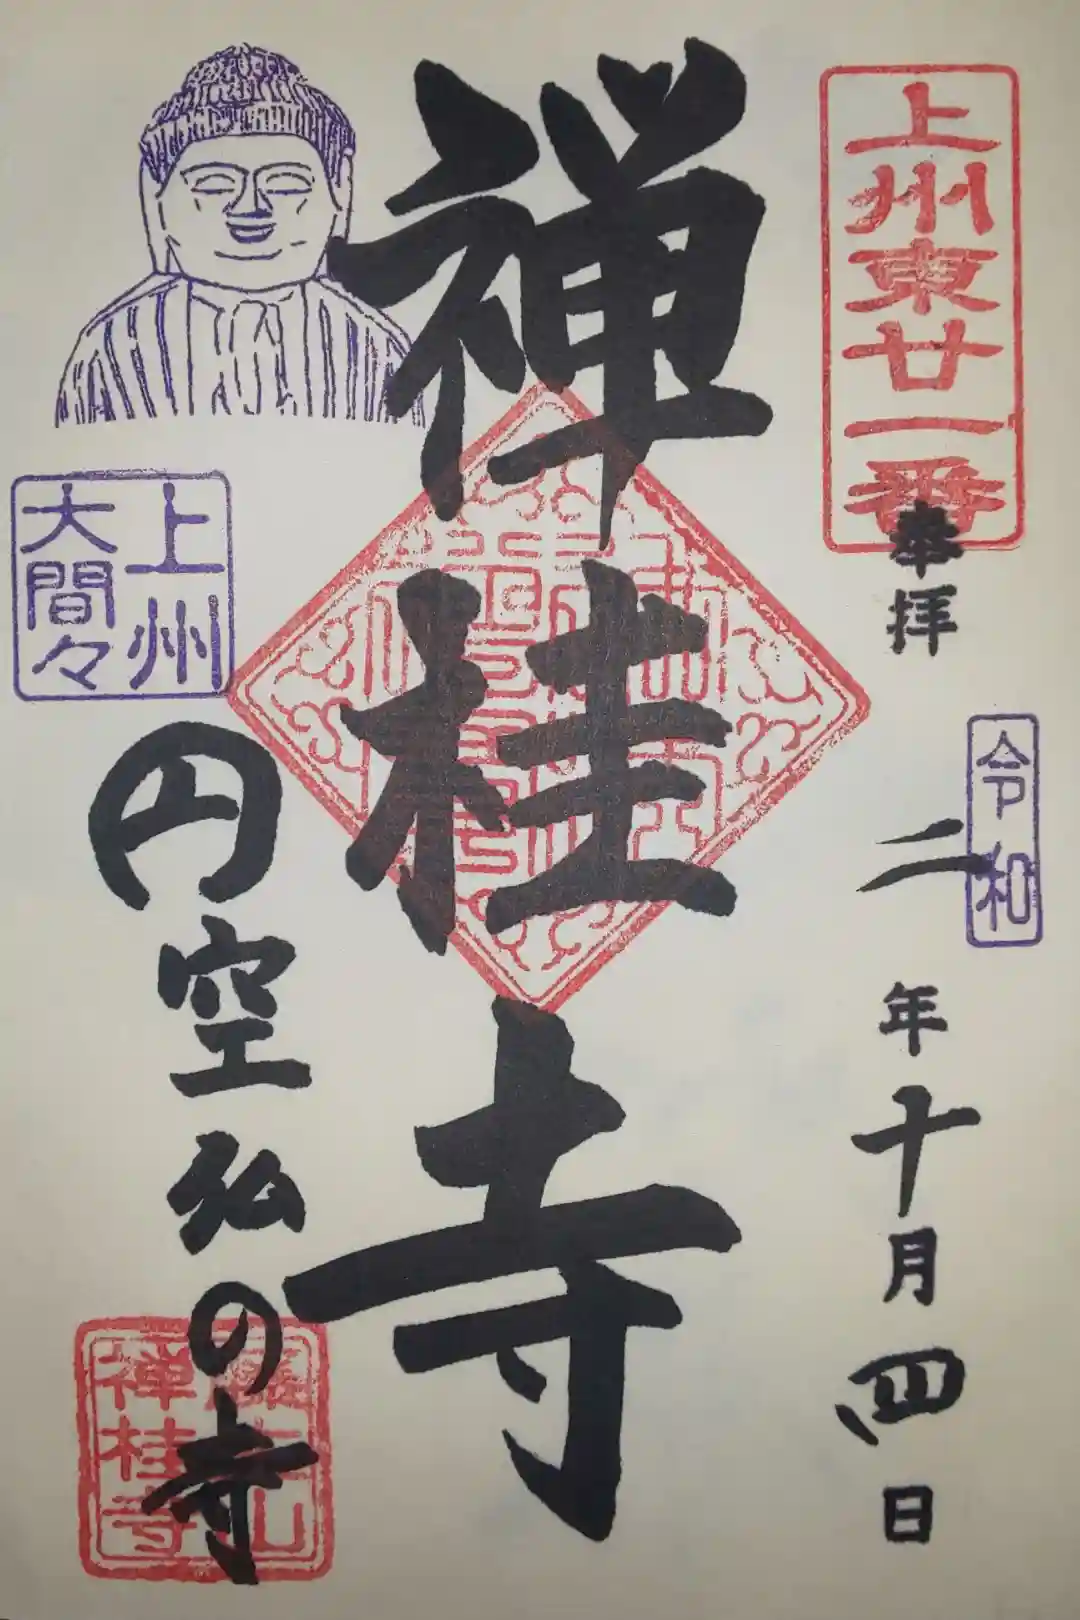 上州東廿一番
奉拝
令和
二年十月四日
禅桂寺
上州
大間々
円空仏の寺
禅桂寺